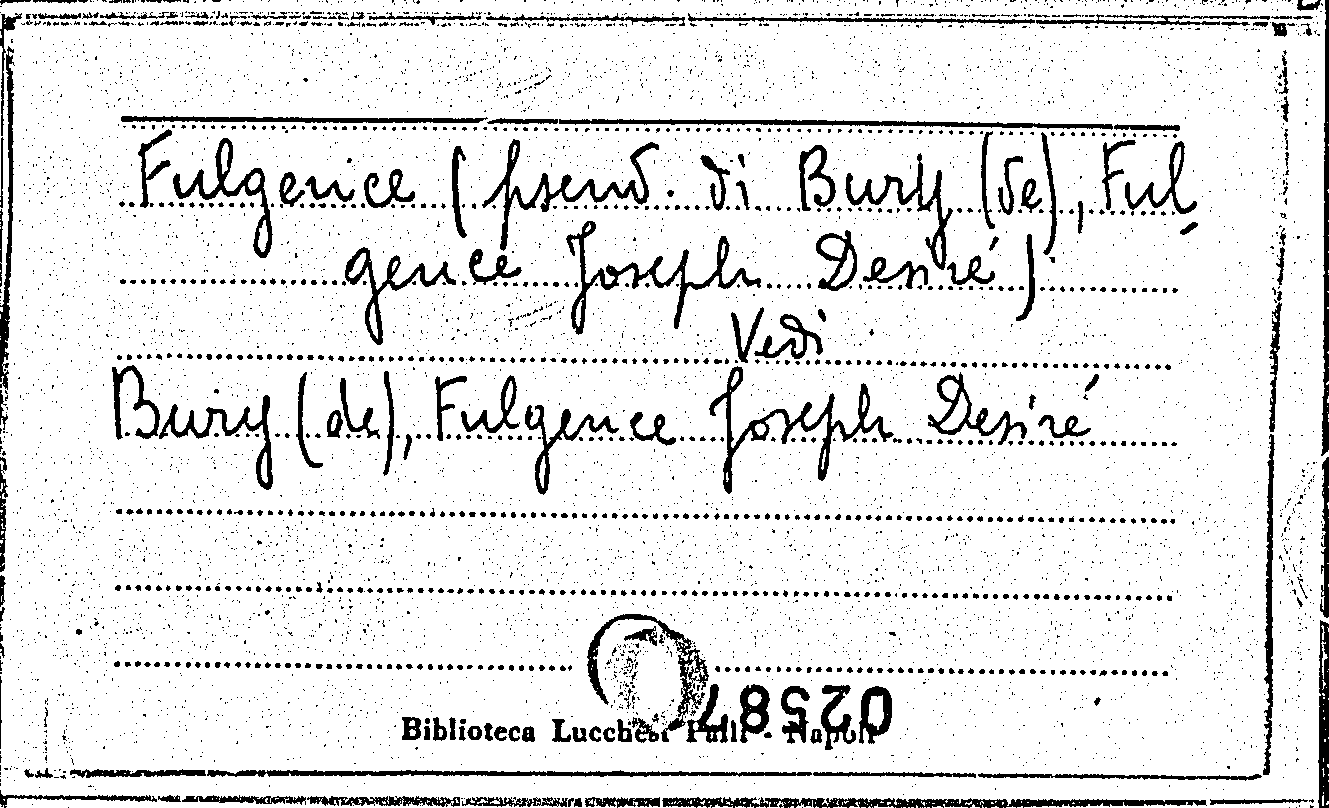 Fulgence (pseud. di Bury (de), Ful-
gence Joseph Desiré)
Vedi
Bury (de), Fulgence Joseph Desiré
02587
Biblioteca Lucchesi Palli - Napoli